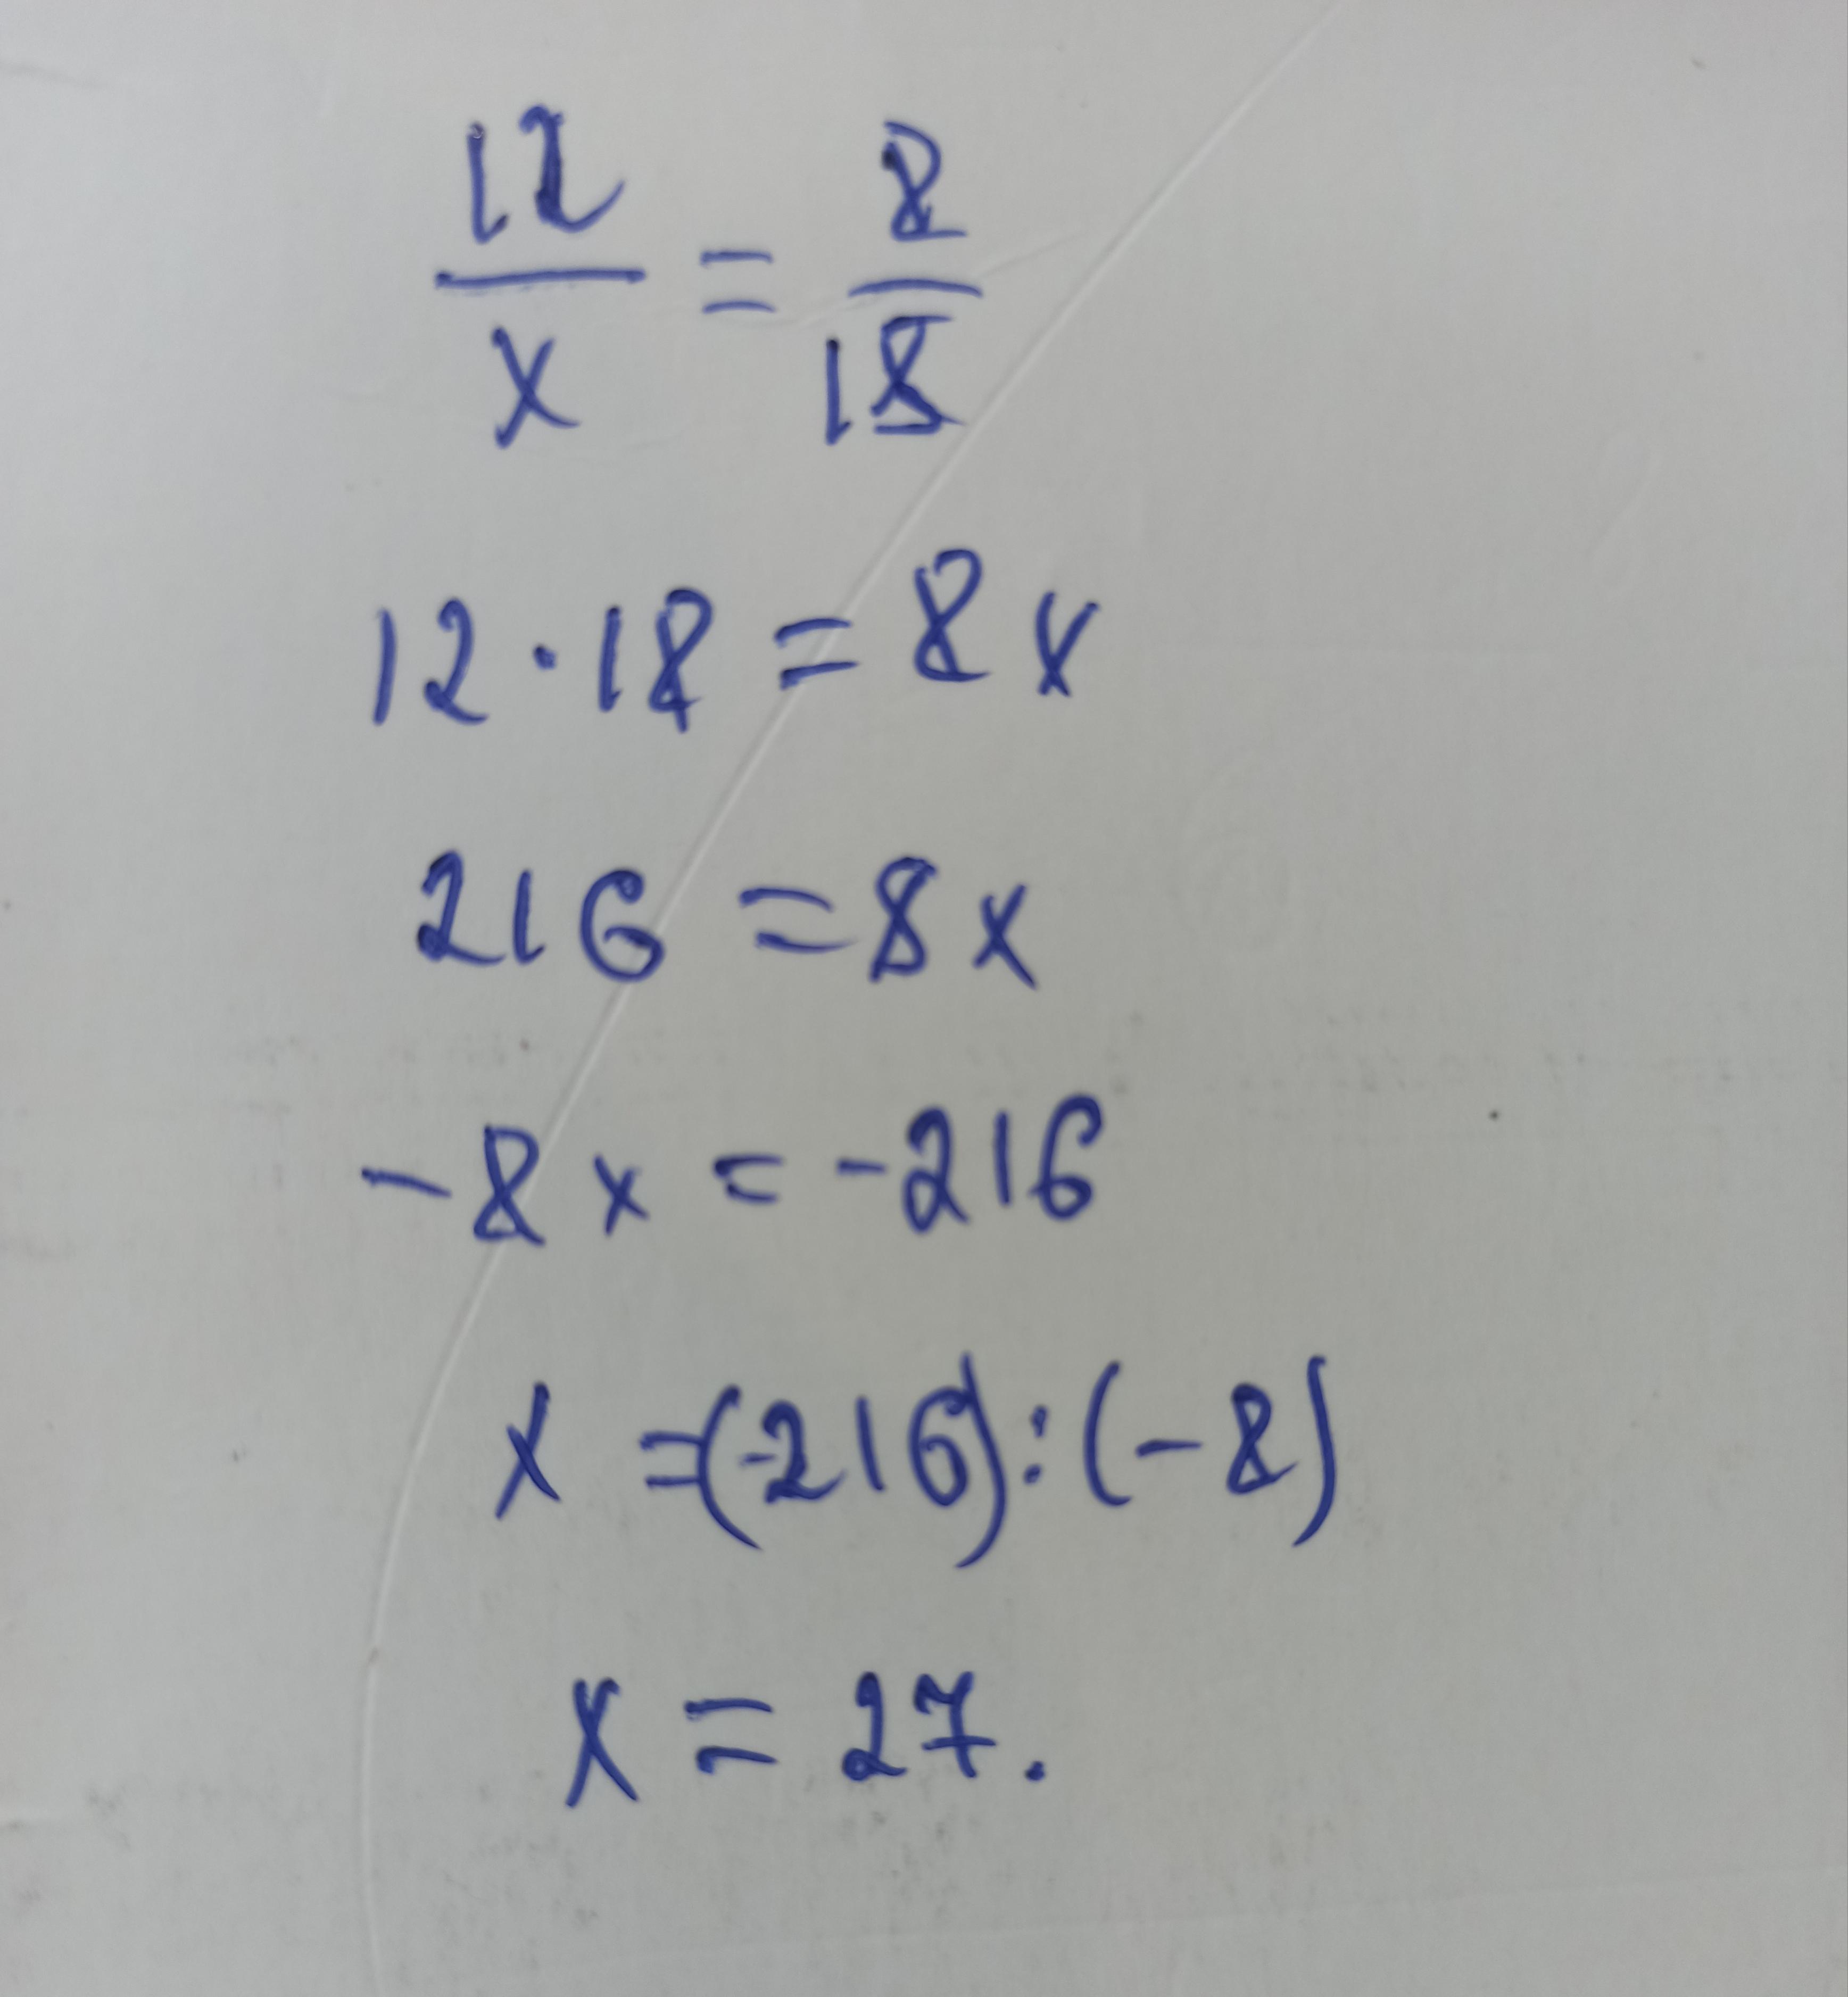 12/x = 8/18
12 · 18 = 8x
216 = 8x
-8x = -216
x = (-216) : (-8)
x = 27.